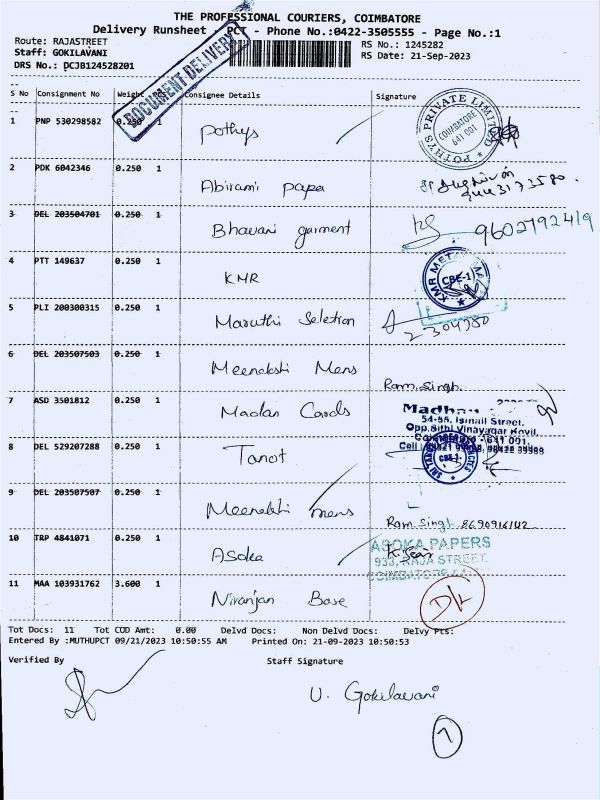 THE PROFESSIONAL COURIERS, COIMBATORE
Delivery Runsheet - PCT - Phone No.:0422-3505555 - Page No.:1
Route: RAJASTREET
RS No.: 1245282
Staff: GOKILAVANI
RS Date: 21-Sep-2023
DRS No.: DCJB124528201
DOCUMENT DELIVERY
S No Consignment No Weight Consignee Details Signature
1 PNP 530298582 0.250 1 Pothys
POTHYS PRIVATE LIMITED
COIMBATORE
641 001
2 PDK 6042346 0.250 1 Abirami paper
3 DEL 203504701 0.250 1 Bhavani garment 9602792419
4 PTT 149637 0.250 1 KMR
KMR CBE-1
5 PLI 200300315 0.250 1 Maruthi Seletion
6 DEL 203507503 0.250 1 Meenakshi Mens Ram.Singh.
7 ASD 3501812 0.250 1 Madan Cards
54-55, Ismail Street,
Opp.Sithi Vinayagar Kovil,
8 DEL 529207288 0.250 1 Tanot
CBE-1
9 DEL 203507507 0.250 1 Meenakshi mens Ram.Singh
10 TRP 4841071 0.250 1 Asoka
ASOKA PAPERS
933, RAJA STREET,
11 MAA 103931762 3.600 1 Niranjan Base
Tot Docs: 11 Tot COD Amt: 0.00 Delvd Docs: Non Delvd Docs: Delvy Pts:
Entered By :MUTHUPCT 09/21/2023 10:50:55 AM Printed On: 21-09-2023 10:50:53
Verified By Staff Signature
U. Gokilavani